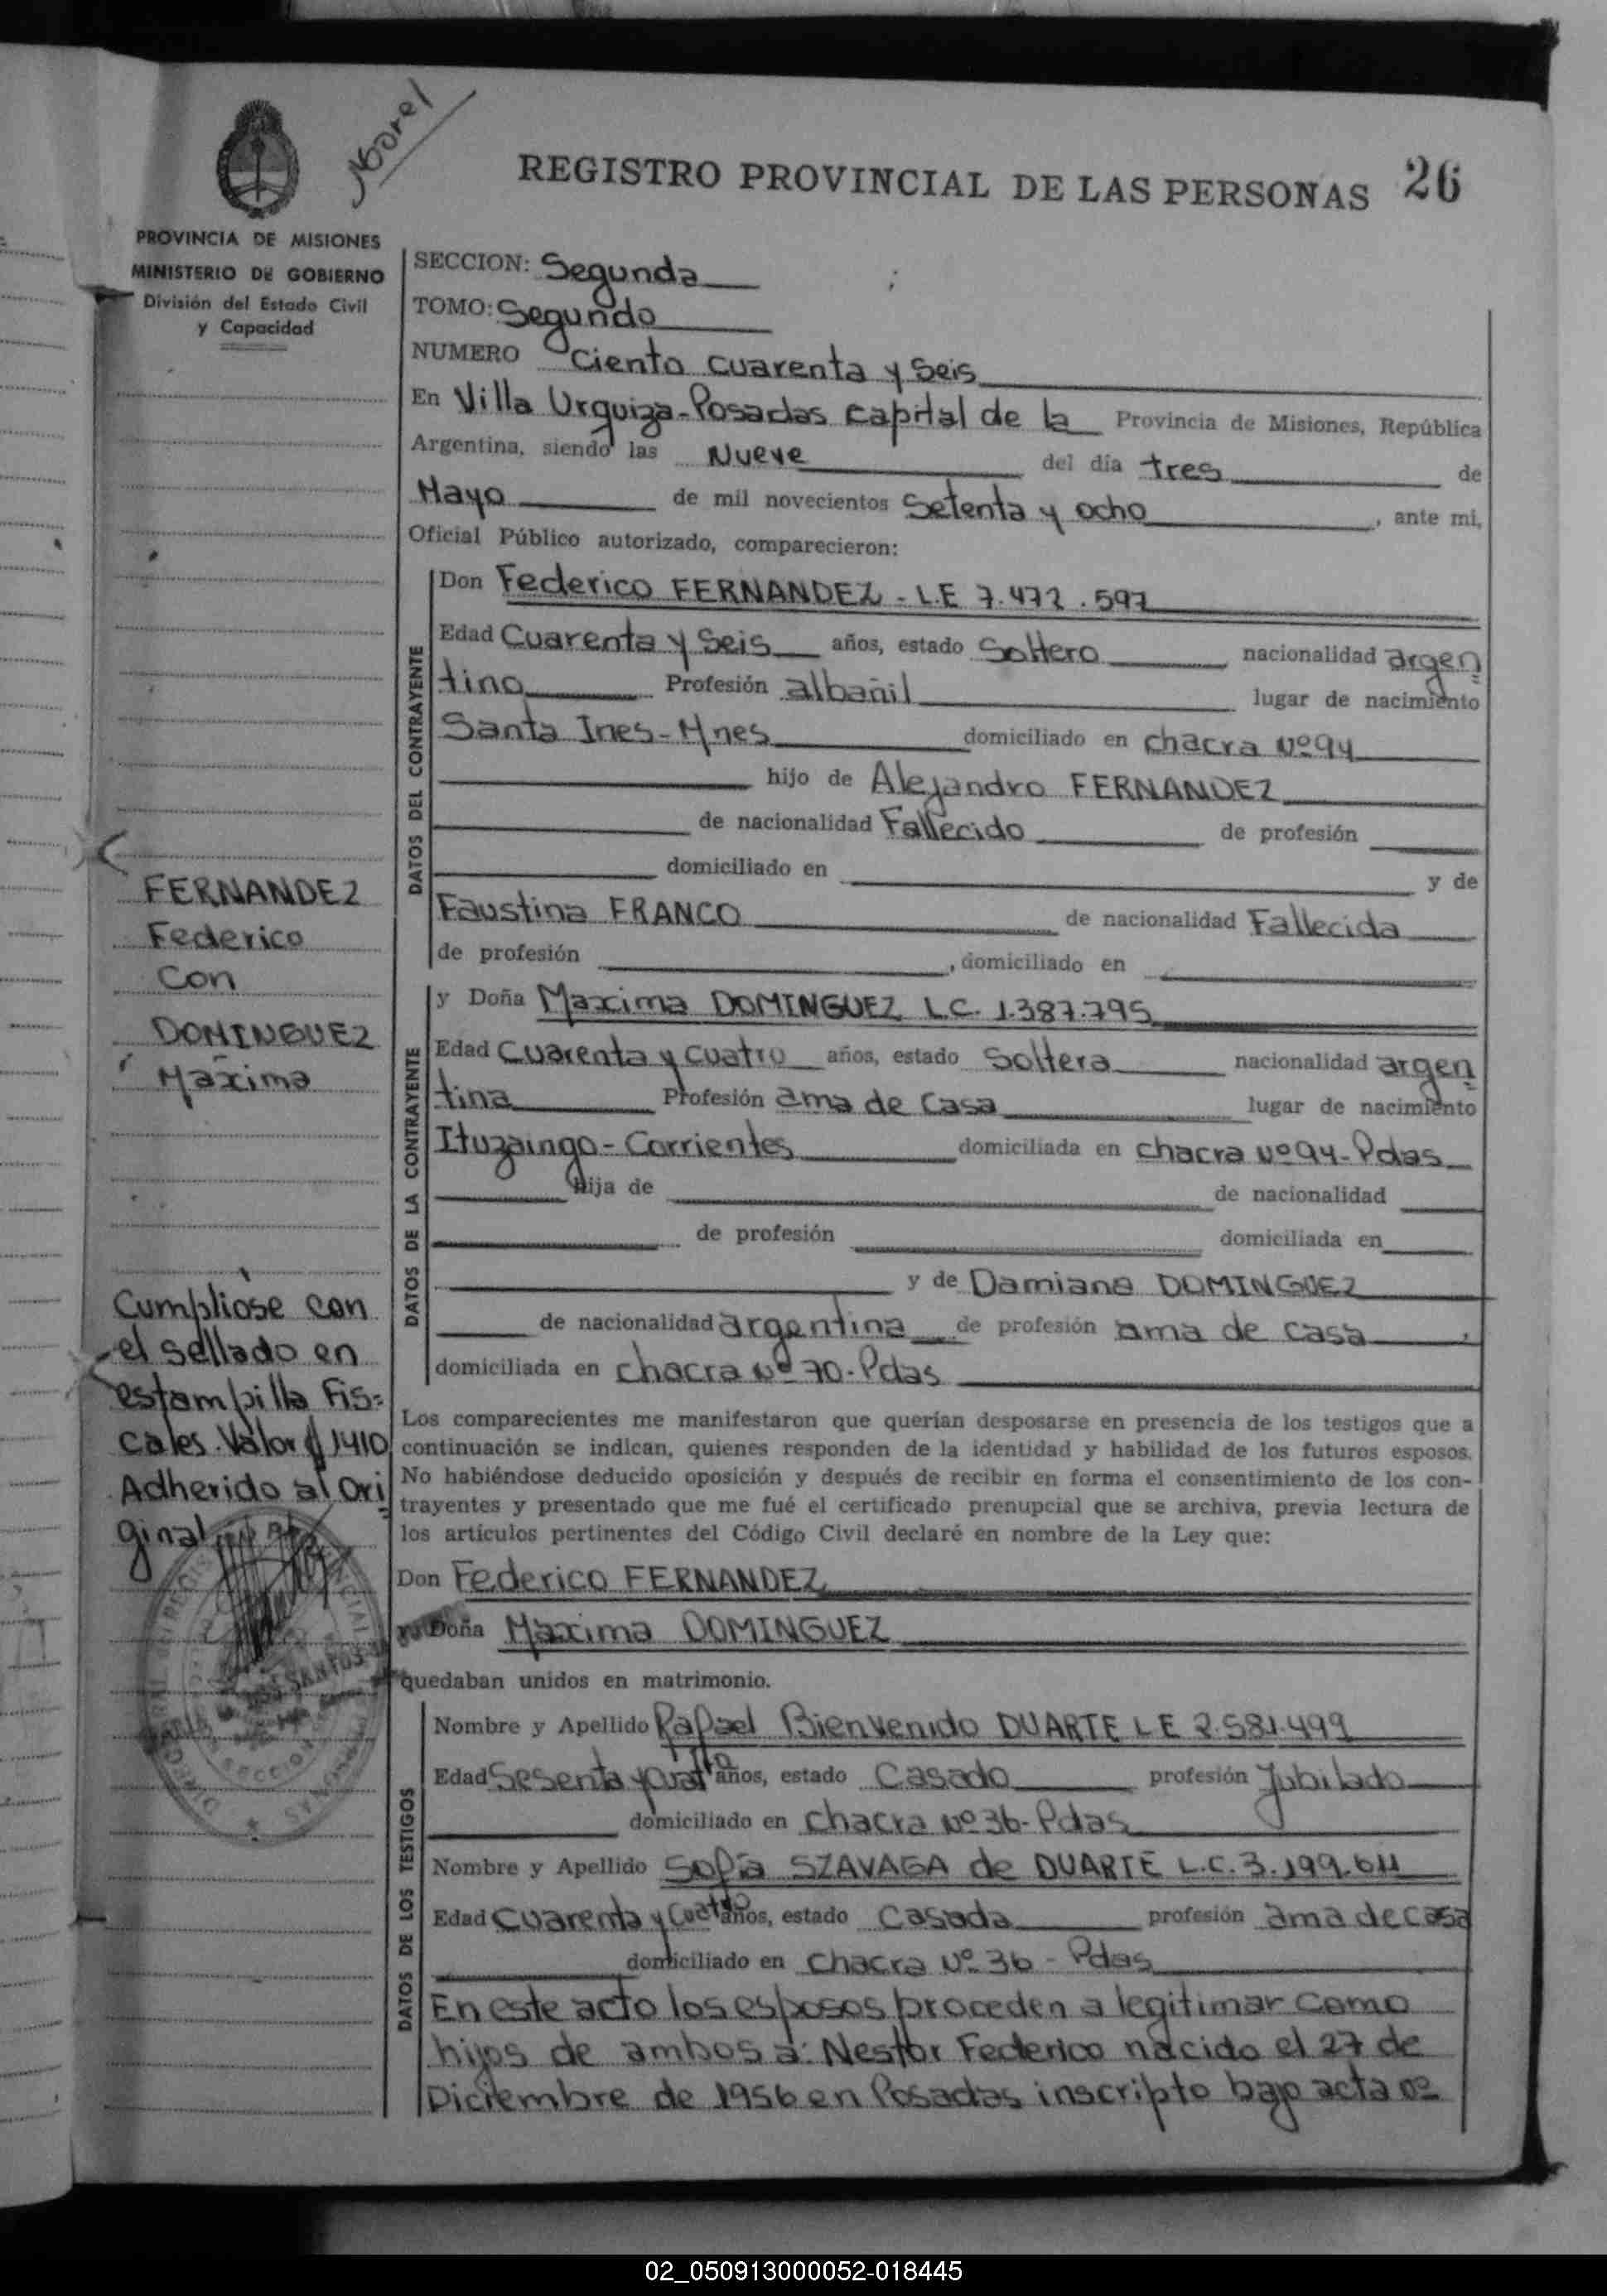 REGISTRO PROVINCIAL DE LAS PERSONAS 26
PROVINCIA DE MISIONES
MINISTERIO DE GOBIERNO
División del Estado Civil
y Capacidad
SECCION: Segunda
TOMO: Segundo
NUMERO Ciento cuarenta y Seis
En Villa Urquiza-Posadas Capital de la Provincia de Misiones, República
Argentina, siendo las Nueve del día tres de
Mayo de mil novecientos Setenta y ocho, ante mi,
Oficial Público autorizado, comparecieron:
DATOS DEL CONTRAYENTE
Don Federico FERNANDEZ - L.E 7.472.597
Edad Cuarenta y Seis años, estado Soltero nacionalidad argen
tino Profesión albañil lugar de nacimiento
Santa Ines-Mnes domiciliado en chacra Nº 94
hijo de Alejandro FERNANDEZ
de nacionalidad Fallecido de profesión
domiciliado en y de
Faustina FRANCO de nacionalidad Fallecida
de profesión , domiciliado en
DATOS DE LA CONTRAYENTE
y Doña Maxima DOMINGUEZ L.C. 1.387.795
Edad Cuarenta y cuatro años, estado Soltera nacionalidad argen
tina Profesión ama de Casa lugar de nacimiento
Ituzaingo-Corrientes domiciliada en chacra Nº 94-Pdas
hija de de nacionalidad
de profesión domiciliada en
y de Damiana DOMINGUEZ
de nacionalidad argentina de profesión ama de casa ,
domiciliada en chacra Nº 70-Pdas
Los comparecientes me manifestaron que querían desposarse en presencia de los testigos que a
continuación se indican, quienes responden de la identidad y habilidad de los futuros esposos.
No habiéndose deducido oposición y después de recibir en forma el consentimiento de los con-
trayentes y presentado que me fué el certificado prenupcial que se archiva, previa lectura de
los artículos pertinentes del Código Civil declaré en nombre de la Ley que:
Don Federico FERNANDEZ
y Doña Maxima DOMINGUEZ
quedaban unidos en matrimonio.
DATOS DE LOS TESTIGOS
Nombre y Apellido Rafael Bienvenido DUARTE L E 2.581.499
Edad Sesenta y cuatro años, estado Casado profesión Jubilado
domiciliado en chacra Nº 36-Pdas
Nombre y Apellido Sofia SZAVAGA de DUARTE L.C. 3.199.611
Edad Cuarenta y Cuatro años, estado Casada profesión ama de casa
domiciliado en chacra Nº 36 - Pdas
En este acto los esposos proceden a legitimar como
hijos de ambos a: Nestor Federico nacido el 27 de
Diciembre de 1956 en Posadas inscripto bajo acta nº
FERNANDEZ
Federico
Con
DOMINGUEZ
Maxima
Cumpliose con
el sellado en
estampilla Fis=
cales. Valor $ 1410
Adherido al Ori
ginal
02_050913000052-018445